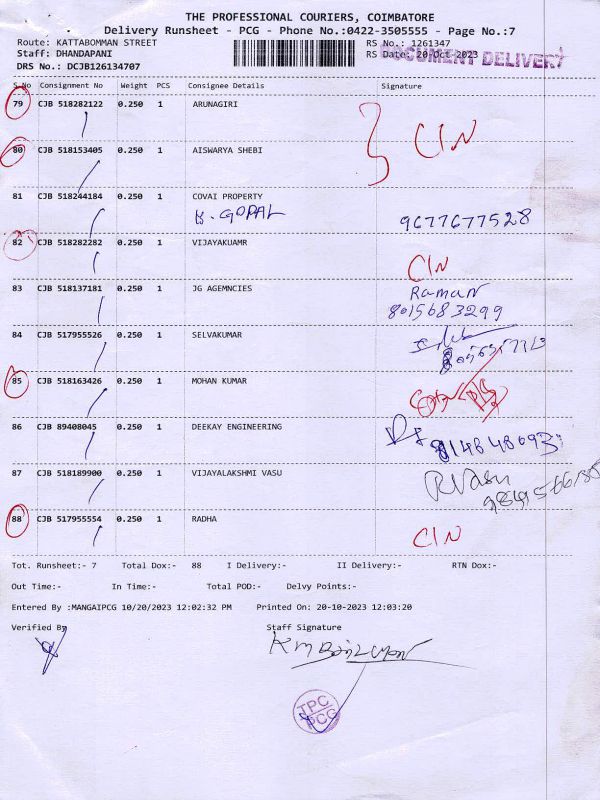 THE PROFESSIONAL COURIERS, COIMBATORE
Delivery Runsheet - PCG - Phone No.:0422-3505555 - Page No.:7
Route: KATTABOMMAN STREET RS No.: 1261347
Staff: DHANDAPANI RS Date: 20-Oct-2023 DOCUMENT DELIVERY
DRS No.: DCJB126134707
S.No Consignment No Weight PCS Consignee Details Signature
79 CJB 518282122 0.250 1 ARUNAGIRI
CIN
80 CJB 518153405 0.250 1 AISWARYA SHEBI
81 CJB 518244184 0.250 1 COVAI PROPERTY
K. GOPAL 9677677528
82 CJB 518282282 0.250 1 VIJAYAKUAMR
CIN
83 CJB 518137181 0.250 1 JG AGEMNCIES
Raman
8015683299
84 CJB 517955526 0.250 1 SELVAKUMAR
85 CJB 518163426 0.250 1 MOHAN KUMAR
86 CJB 89408045 0.250 1 DEEKAY ENGINEERING
87 CJB 518189900 0.250 1 VIJAYALAKSHMI VASU
RVasu
88 CJB 517955554 0.250 1 RADHA
CIN
Tot. Runsheet:- 7 Total Dox:- 88 I Delivery:- II Delivery:- RTN Dox:-
Out Time:- In Time:- Total POD:- Delvy Points:-
Entered By :MANGAIPCG 10/20/2023 12:02:32 PM Printed On: 20-10-2023 12:03:20
Verified By Staff Signature
TPC
PCG